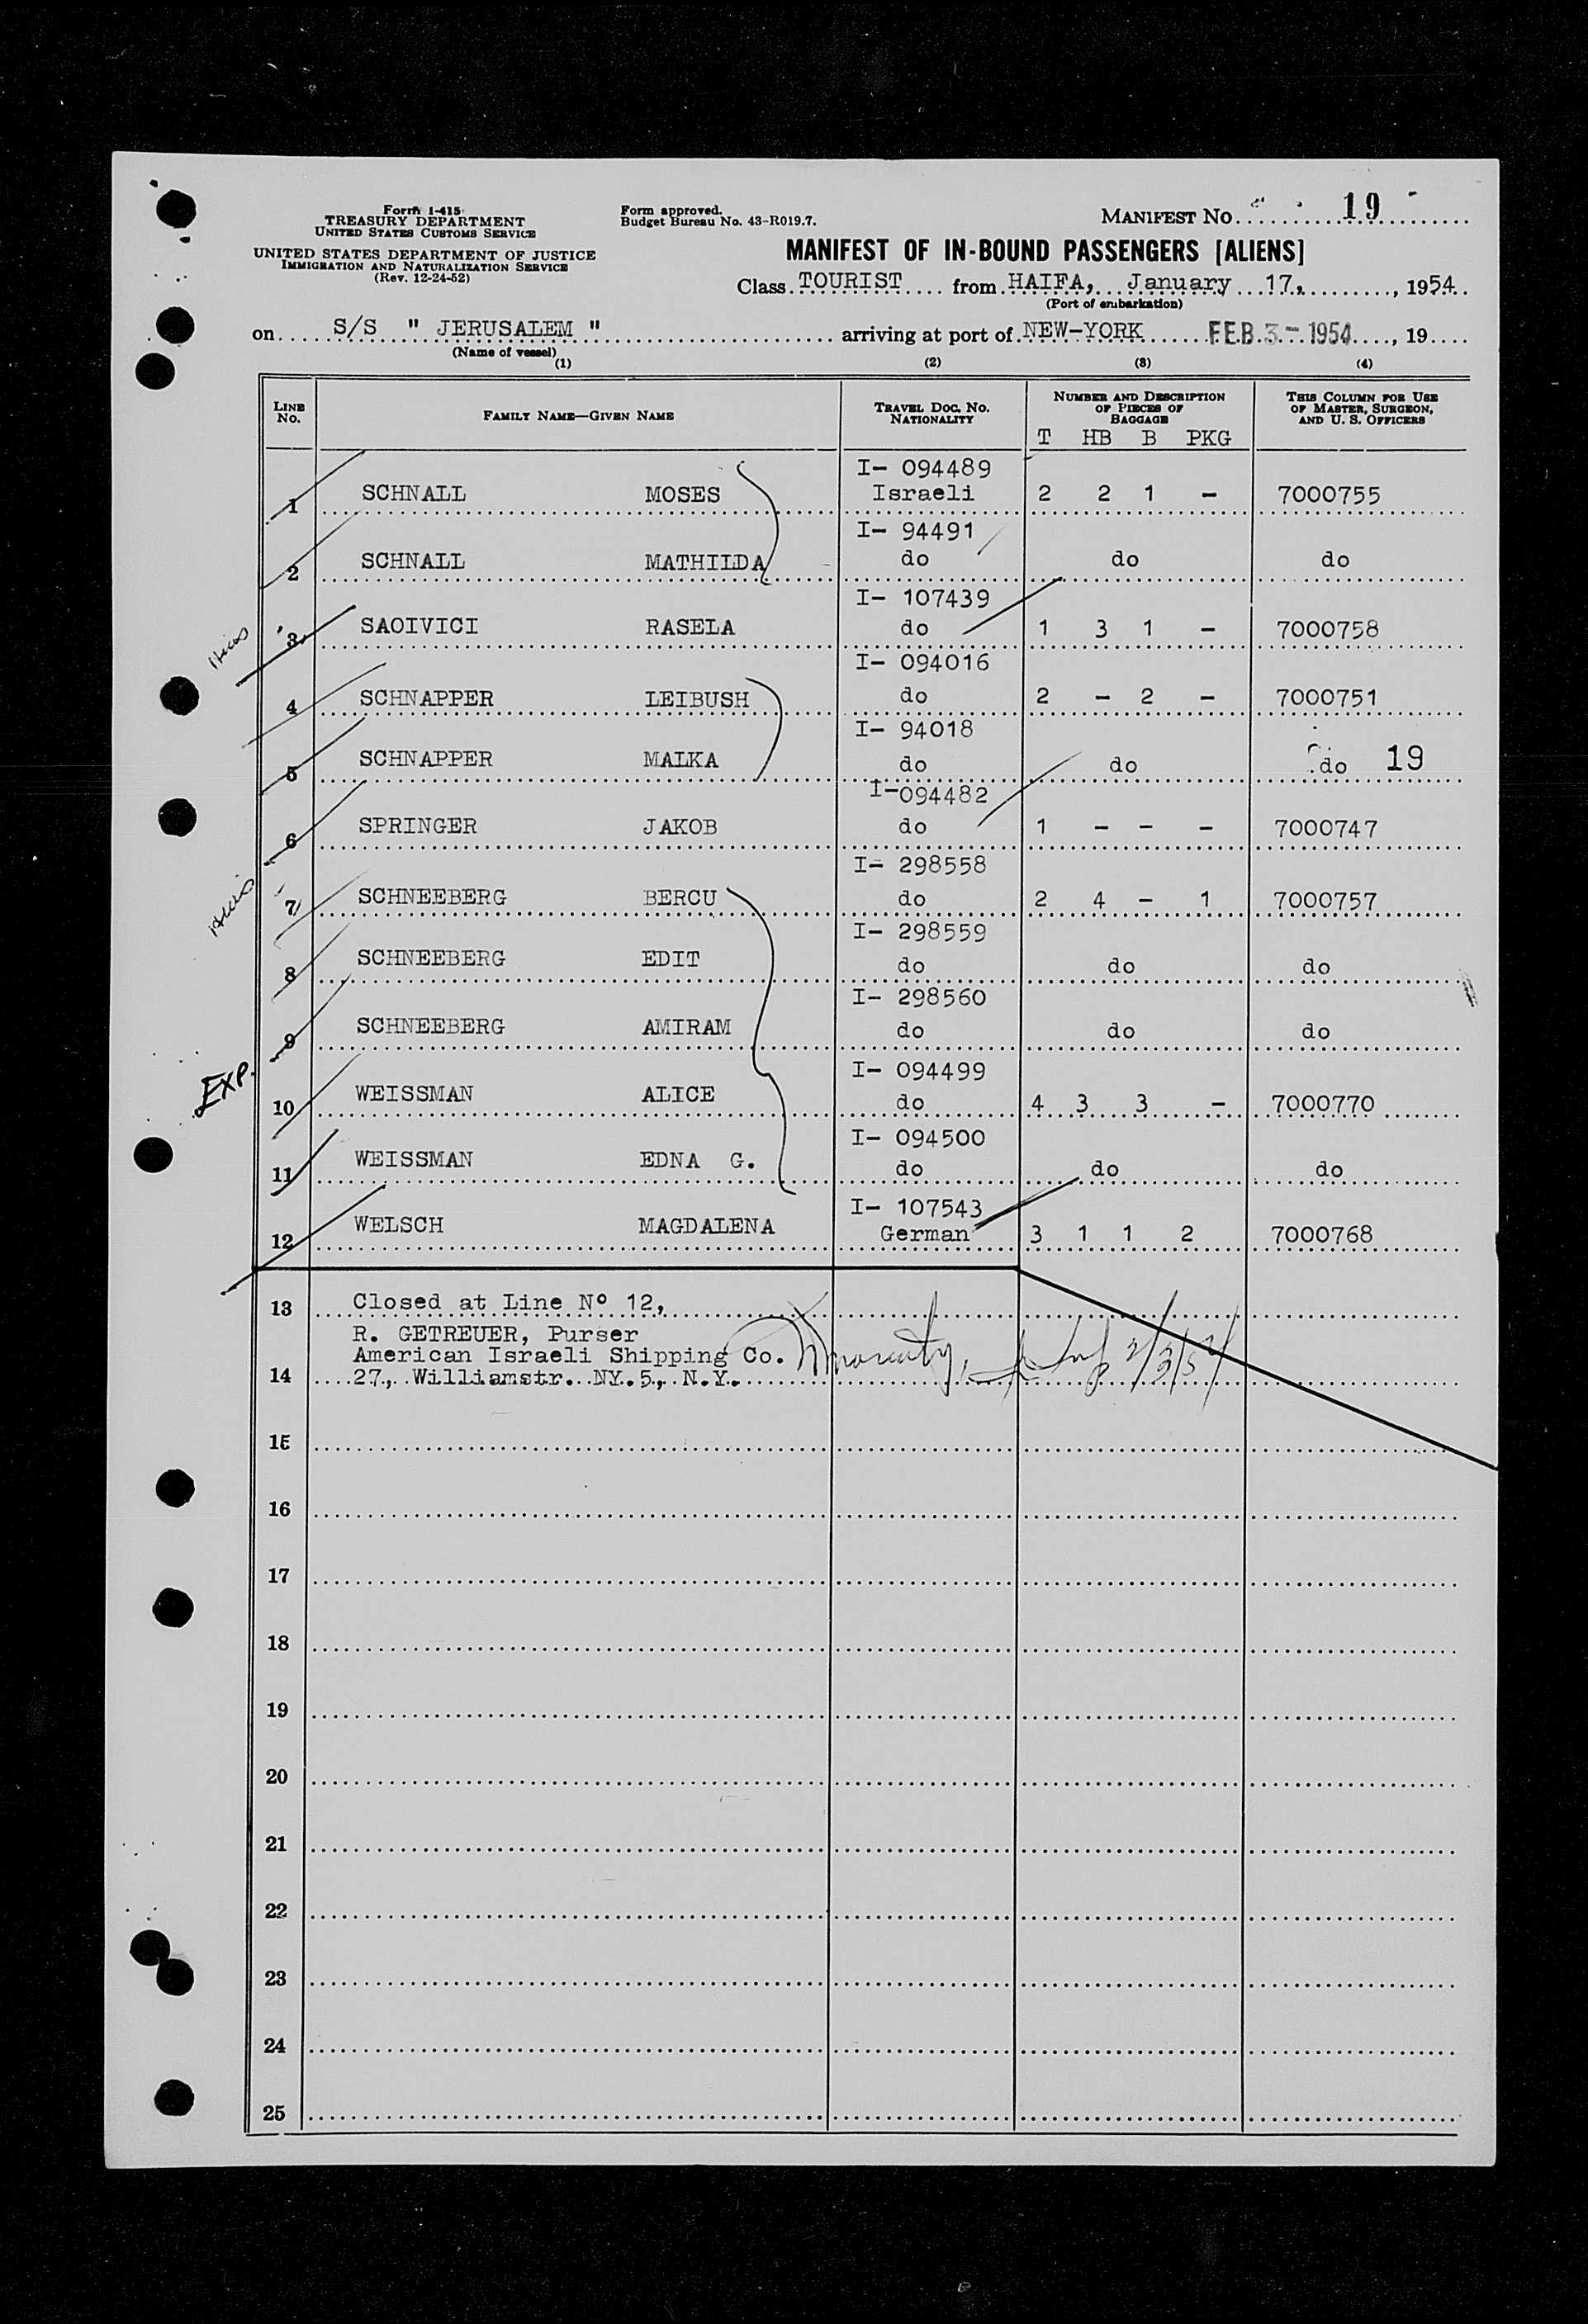 Form I-415
TREASURY DEPARTMENT
UNITED STATES CUSTOMS SERVICE
UNITED STATES DEPARTMENT OF JUSTICE
IMMIGRATION AND NATURALIZATION SERVICE
(Rev. 12-24-52)
Form approved.
Budget Bureau No. 43-R019.7.
MANIFEST NO. 19
MANIFEST OF IN-BOUND PASSENGERS [ALIENS]
Class TOURIST from HAIFA, January 17, , 1954
(Port of embarkation)
on S/S " JERUSALEM " arriving at port of NEW-YORK FEB 3- 1954, 19
(Name of vessel)
(1) (2) (3) (4)
LINE NO. FAMILY NAME—GIVEN NAME TRAVEL DOC. NO. NATIONALITY NUMBER AND DESCRIPTION OF PIECES OF BAGGAGE THIS COLUMN FOR USE OF MASTER, SURGEON, AND U. S. OFFICERS
T HB B PKG
I- 094489
1 SCHNALL MOSES Israeli 2 2 1 - 7000755
I- 94491
2 SCHNALL MATHILDA do do do
I- 107439
3 SAOIVICI RASELA do 1 3 1 - 7000758
I- 094016
4 SCHNAPPER LEIBUSH do 2 - 2 - 7000751
I- 94018
5 SCHNAPPER MALKA do do do 19
I-094482
6 SPRINGER JAKOB do 1 - - - 7000747
I- 298558
7 SCHNEEBERG BERCU do 2 4 - 1 7000757
I- 298559
8 SCHNEEBERG EDIT do do do
I- 298560
9 SCHNEEBERG AMIRAM do do do
EXP.
I- 094499
10 WEISSMAN ALICE do 4 3 3 - 7000770
I- 094500
11 WEISSMAN EDNA G. do do do
I- 107543
12 WELSCH MAGDALENA German 3 1 1 2 7000768
13 Closed at Line Nº 12,
R. GETREUER, Purser
American Israeli Shipping Co.
14 27, Williamstr. NY.5, N.Y. 2/3/54
15
16
17
18
19
20
21
22
23
24
25